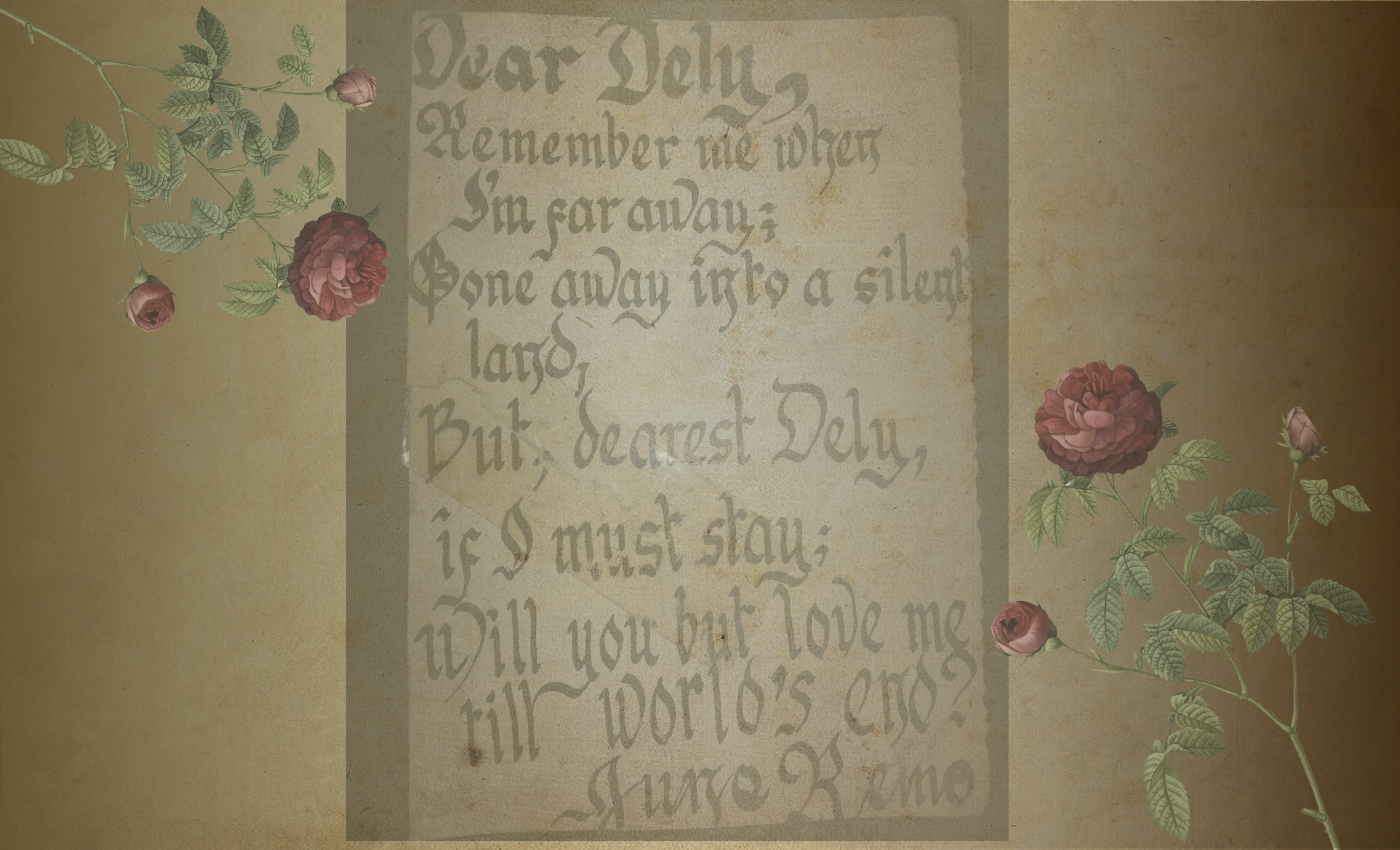 Dear Dely,
Remember me when
I'm far away;
Gone away into a silent
land;
But, dearest Dely,
if I must stay;
Will you but love me
till world's end?
Juno Remo